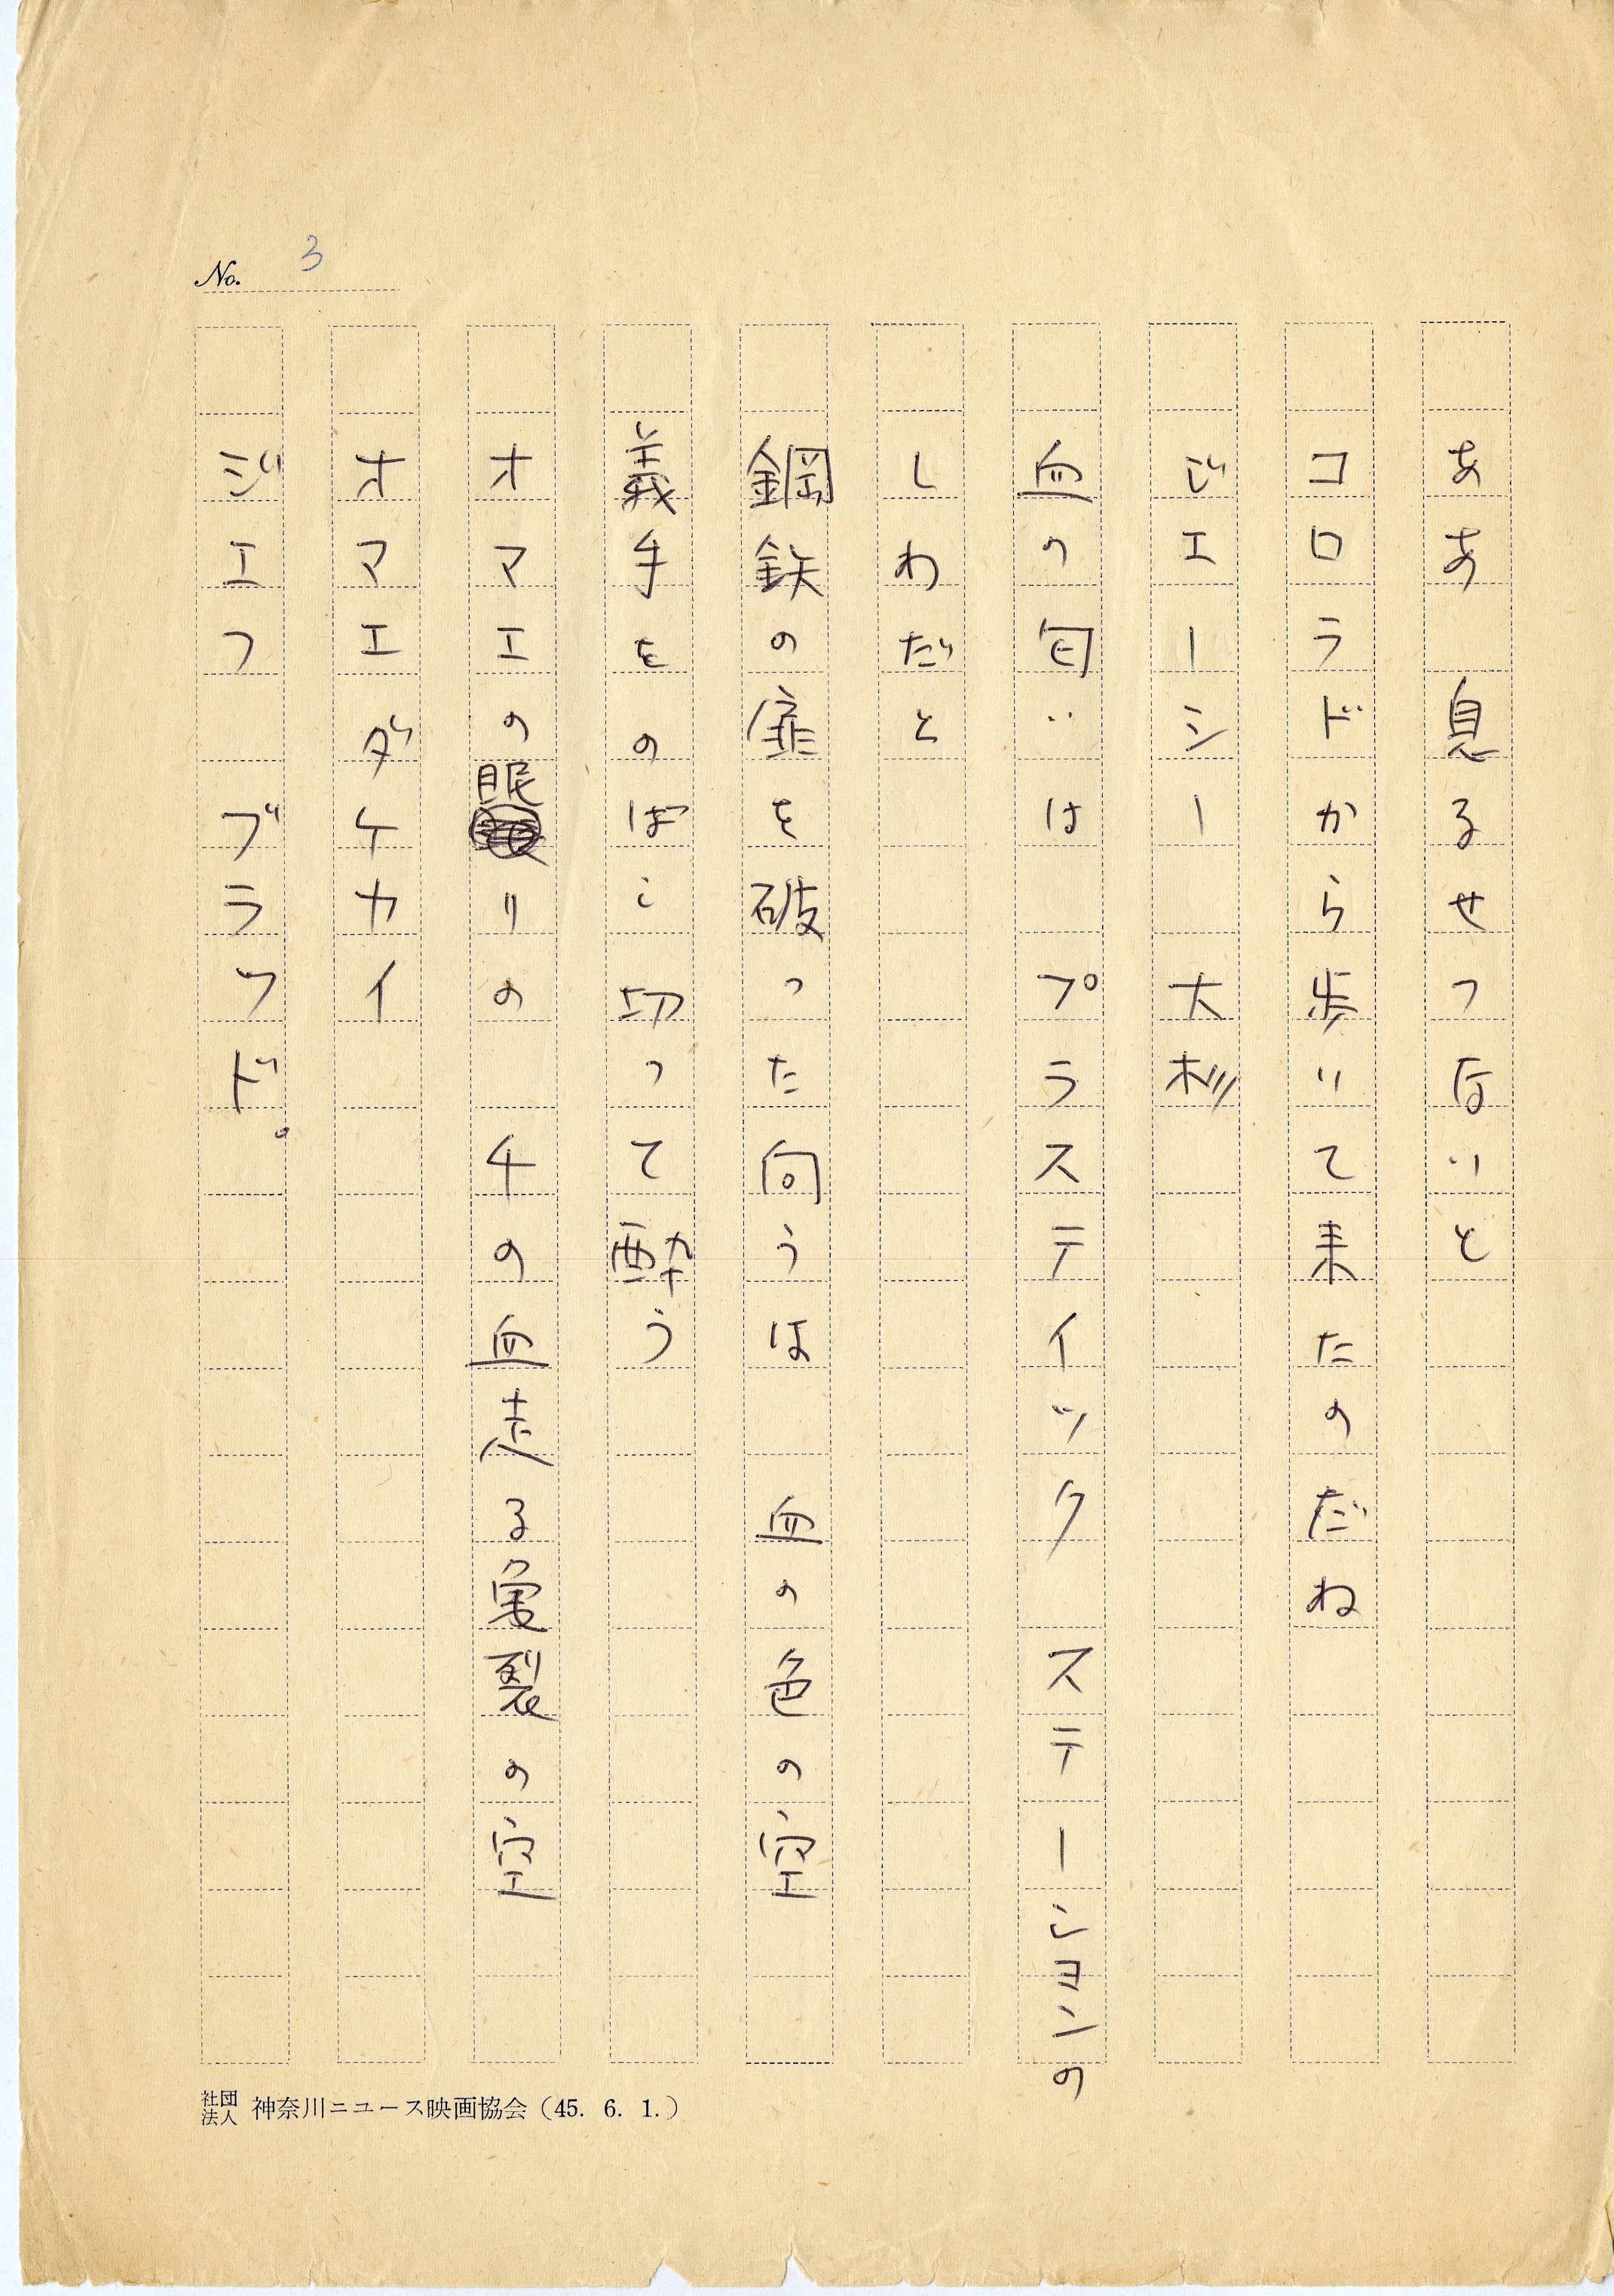 No. 3
ああ 息るせつないと
コロラドから歩いて来たのだね
ジエーシー 大杉
血の匂いは プラスティック ステーションの
しわだと
鋼鉄の扉を破った向うは 血の色の空
義手をのばし切って酔う
オマエの眠りの 千の血走る亀裂の空
オマエダケカイ
ジエフ ブラッド。
社団法人 神奈川ニュース映画協会(45. 6. 1.)